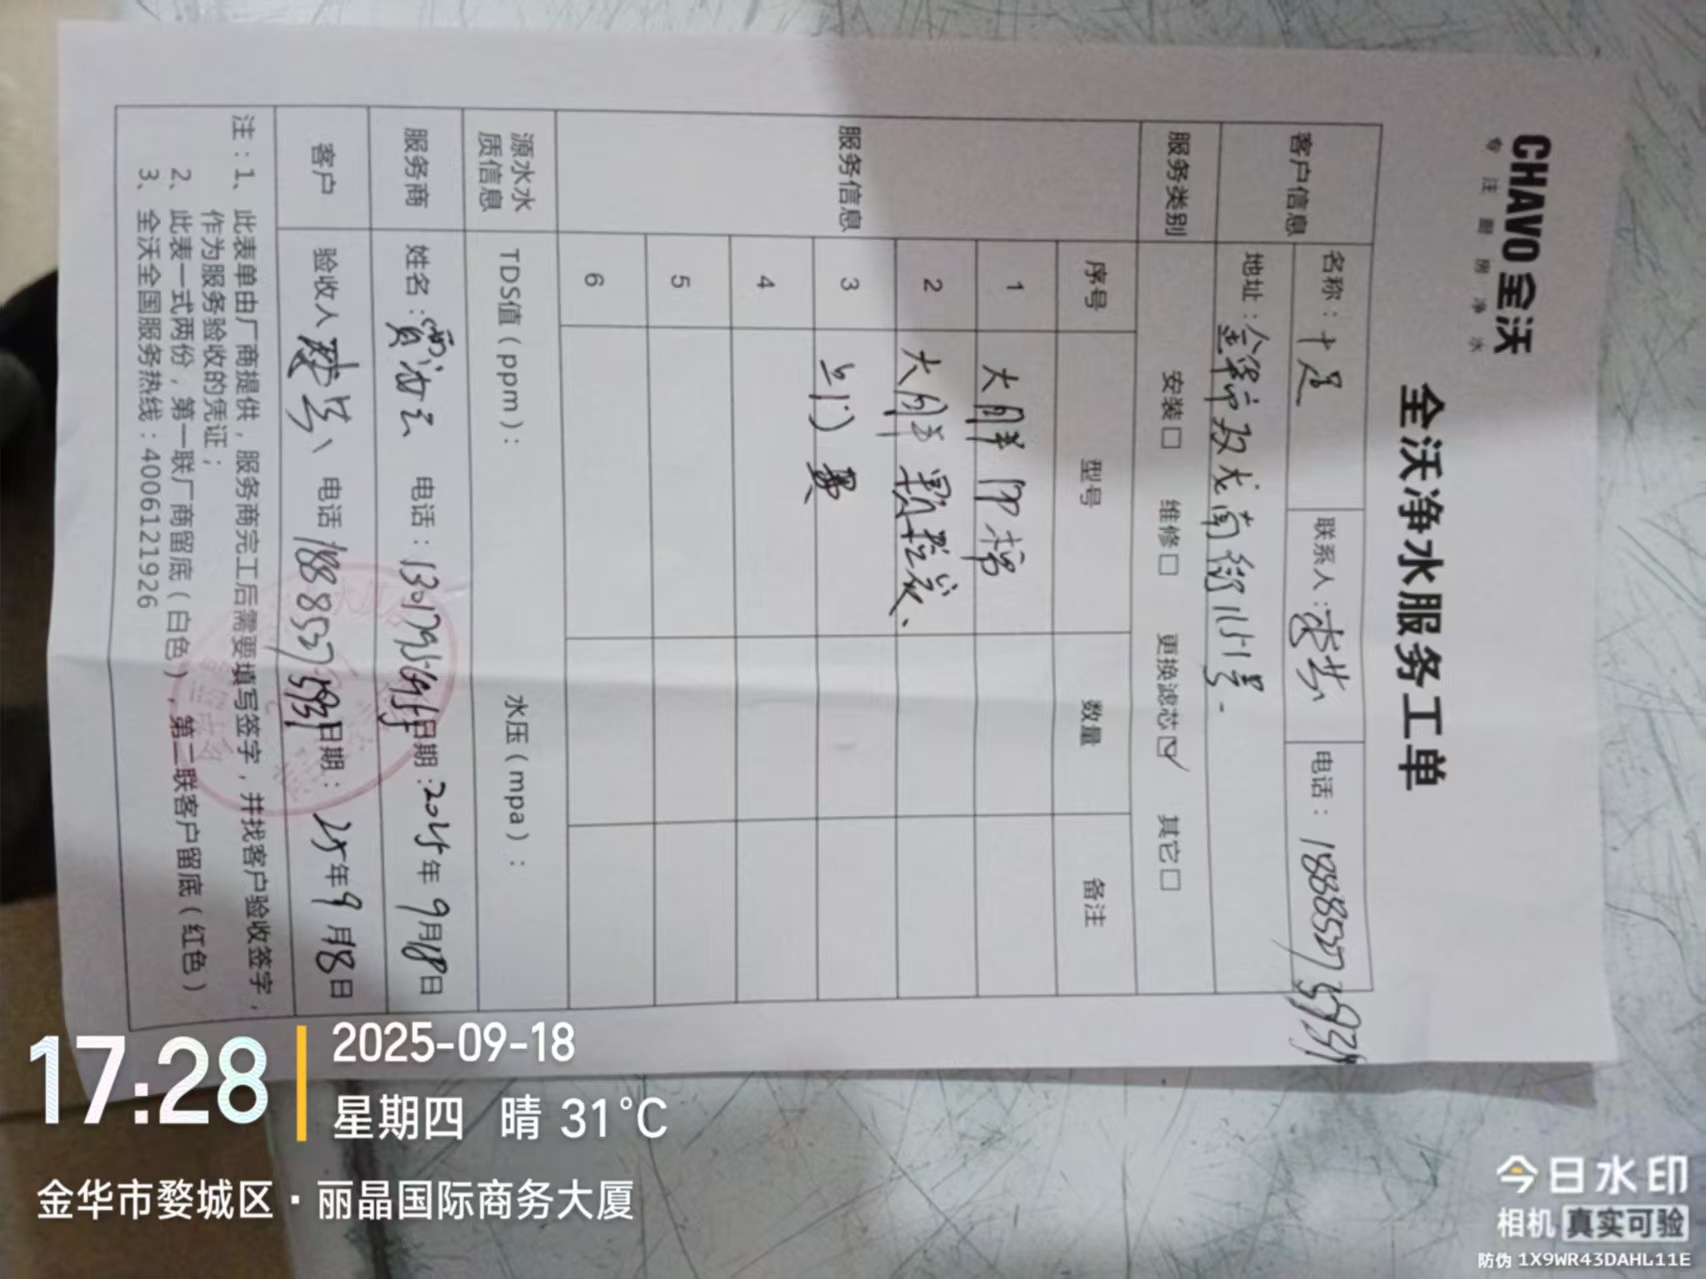 CHAVO 全沃
专注厨房净水
全沃净水服务工单
客户信息 名称：十足 联系人： 电话：
地址：金华市双龙南街1151号
服务类别 安装□ 维修□ 更换滤芯☑ 其它□
服务信息 序号 型号 数量 备注
1 大胖
2 大胖
3 上门费
4
5
6
源水水质信息 TDS值（ppm）： 水压（mpa）：
服务商 姓名： 电话： 日期：2025年9月18日
客户 验收人 电话 日期：25年9月18日
注：1、此表单由厂商提供，服务商完工后需要填写签字，并找客户验收签字，
作为服务验收的凭证；
2、此表一式两份，第一联厂商留底（白色），第二联客户留底（红色）
3、全沃全国服务热线：4006121926
17:28
2025-09-18
星期四 晴 31°C
金华市婺城区·丽晶国际商务大厦
今日水印
相机 真实可验
防伪 1X9WR43DAHL11E